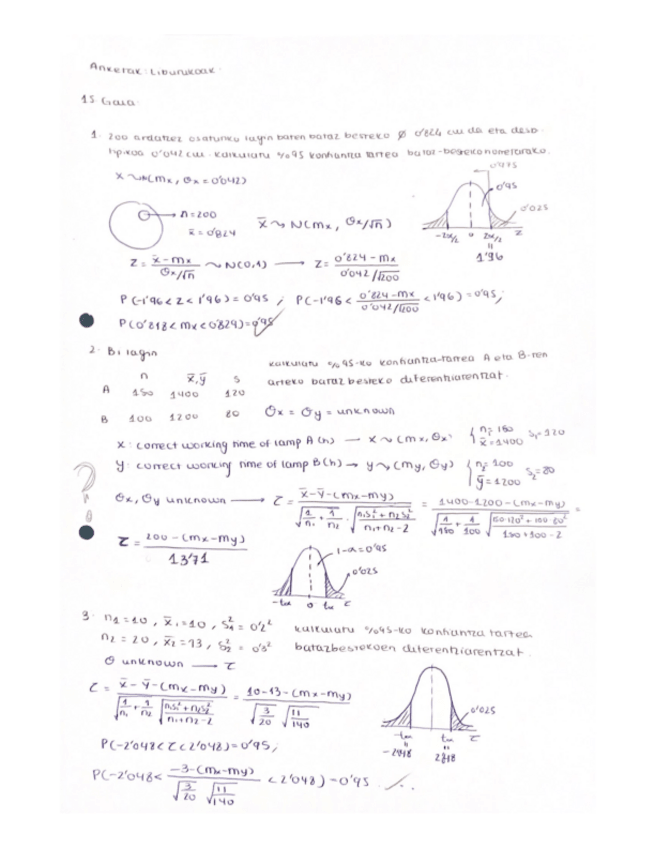 Ariketak: Liburukoak.
15. Gaia.
1. 200 ardatzez osaturiko lagin baten bataz besteko ø 0'824 cm da eta desb.
tipikoa 0'042 cm. Kalkulatu %95 konfiantza tartea bataz-bestekonetarako.
X ~ N(mx, σx = 0'042)
0'475
0'95
0'025
n = 200
x̄ = 0'824
X̄ ~ N(mx, σx/√n)
-zα/2 0 zα/2 z
1'96
z = (x̄ - mx)/(σx/√n) ~ N(0,1) → z = (0'824 - mx)/(0'042/√200)
P(-1'96 < z < 1'96) = 0'95 ; P(-1'96 < (0'824 - mx)/(0'042/√200) < 1'96) = 0'95;
P(0'818 < mx < 0'829) = 0'95
2. Bi lagin
n x̄,ȳ s
A 150 1400 120
B 100 1200 80
Kalkulatu %95-ko konfiantza-tartea A eta B-ren
arteko bataz besteko diferentziarentzat.
σx = σy = unknown
X: correct working time of lamp A (h) → X ~ (mx, σx) { n₁ = 150 x̄ = 1400 s₁ = 120
Y: correct working time of lamp B (h) → Y ~ (my, σy) { n₂ = 100 ȳ = 1200 s₂ = 80
?
σx, σy unknown → τ = (x̄ - ȳ - (mx - my))/(√(1/n₁ + 1/n₂) · √((n₁s₁² + n₂s₂²)/(n₁ + n₂ - 2))) = (1400 - 1200 - (mx - my))/(√(1/150 + 1/100) √((150·120² + 100·80²)/(150 + 100 - 2))) =
τ = (200 - (mx - my))/13'71
1-α = 0'95
0'025
-tα 0 tα τ
3. n₁ = 10, x̄₁ = 10, s₁² = 0'2²
n₂ = 20, x̄₂ = 13, s₂² = 0'3²
Kalkulatu %95-ko konfiantza tartea
batazbestekoen diferentziarentzat.
σ unknown → τ
τ = (x̄ - ȳ - (mx - my))/(√(1/n₁ + 1/n₂) √((n₁s₁² + n₂s₂²)/(n₁ + n₂ - 2))) = (10 - 13 - (mx - my))/(√(3/20) √(11/140))
0'025
-tα tα τ
P(-2'048 < τ < 2'048) = 0'95;
P(-2'048 < (-3 - (mx - my))/(√(3/20) √(11/140)) < 2'048) = 0'95